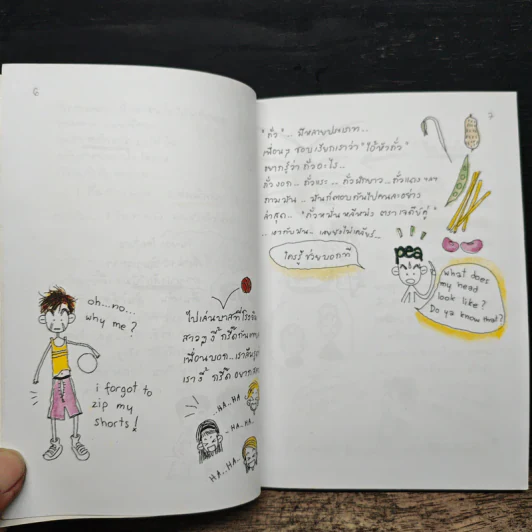 6
oh...no...
why me?
i forgot to
zip my
shorts!
ไปเล่นบาสที่โรงยิม
เพื่อนบอก..เรา
HA..HA
HA..HA..
HA..HA..
7
"ถั่ว"... มีหลายประเภท..
เพื่อนๆ ชอบเรียกเราว่า "ไอ้หัวถั่ว"
อยากรู้ว่า ถั่วอะไร..
ถั่วงอก.. ถั่วแระ.. ถั่วฝักยาว..ถั่วแดง ฯลฯ
ถามมัน.. มันก็ตอบกันไปคนละอย่าง
ล่าสุด.. "ถั่วหมั่น หลีหม่ง ตราเจดีย์คู่"
ใครรู้ ช่วยบอกที
pea
what does
my head
look like?
Do ya know that?